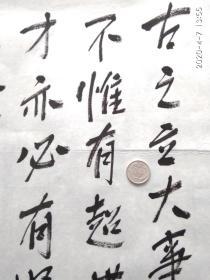 古之立大事
不惟有超世
才亦必有坚
2020-4-7 13:55